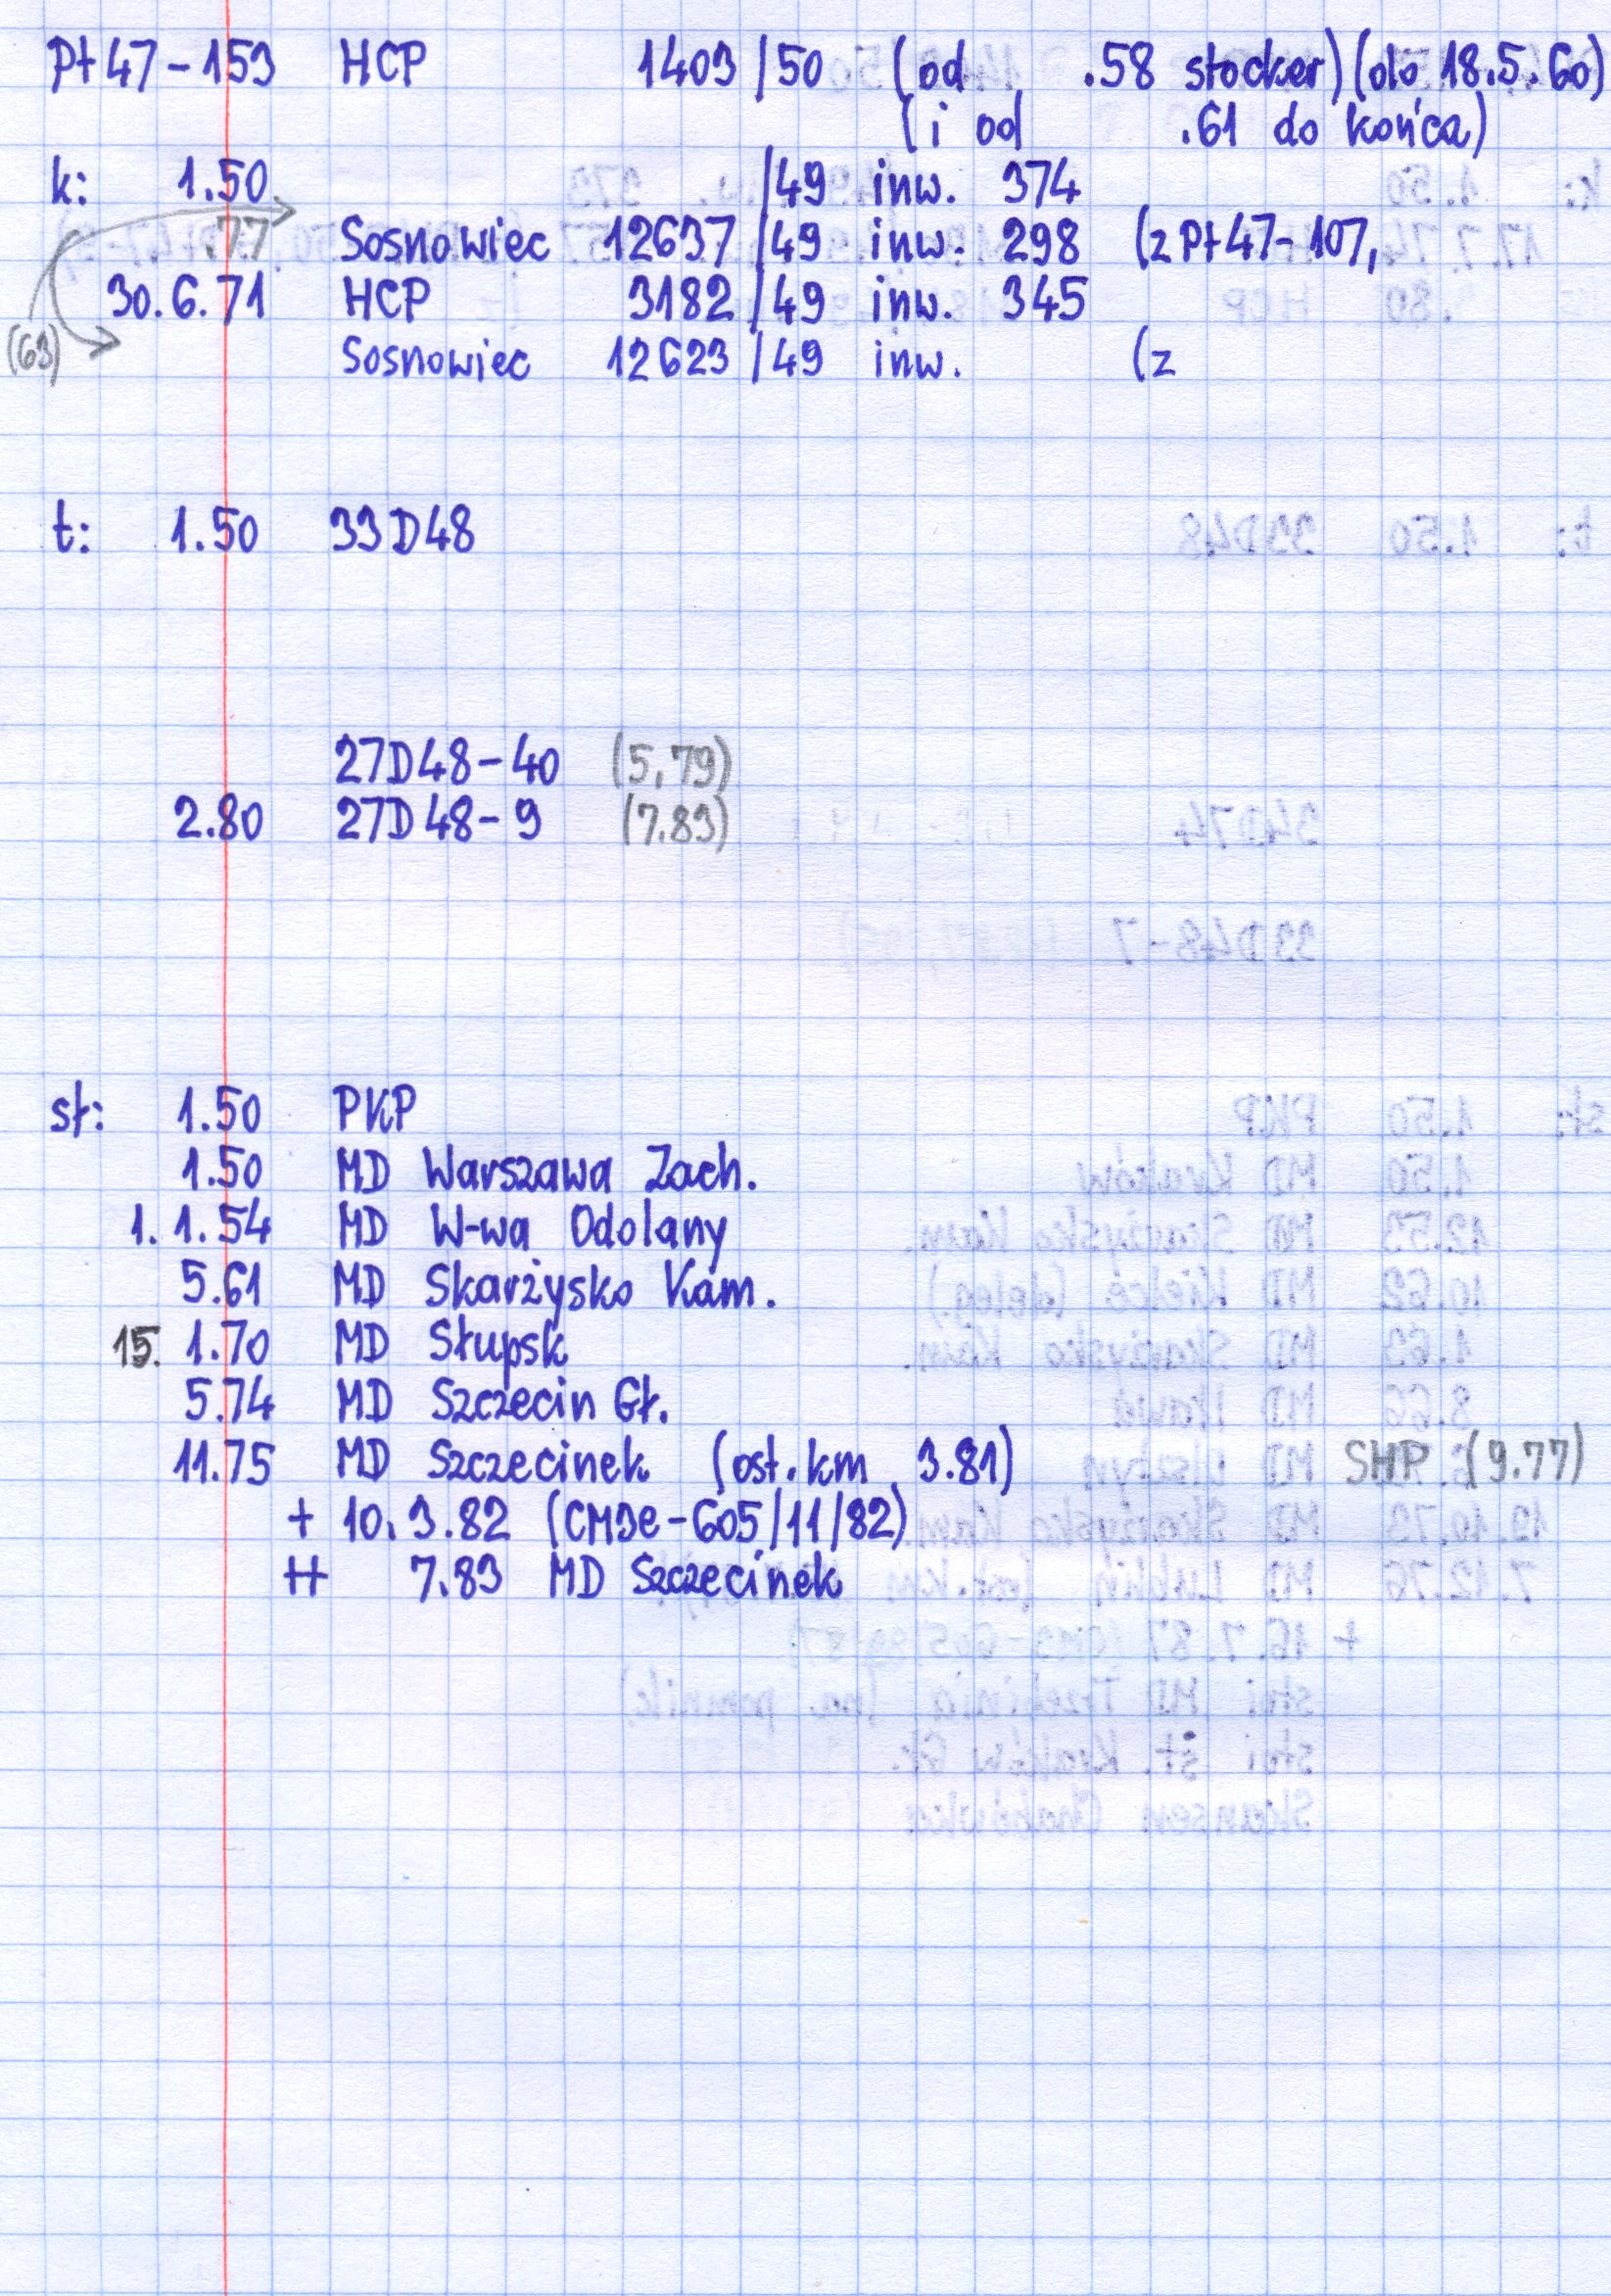 Pt47-153 HCP 1403/50 (od .58 stocker) (do 18.5.60)
(i od .61 do końca)
k: 1.50 /49 inw. 374
.77 Sosnowiec 12637/49 inw. 298 (z Pt47-107,
30.6.71 HCP 3182/49 inw. 345
(63) Sosnowiec 12623/49 inw. (z
t: 1.50 33D48
27D48-40 (5,79)
2.80 27D48-9 (7.83)
sł: 1.50 PKP
1.50 MD Warszawa Zach.
1.1.54 MD W-wa Odolany
5.61 MD Skarżysko Kam.
15.1.70 MD Słupsk
5.74 MD Szczecin Gł.
11.75 MD Szczecinek (ost.km 3.81) SHP (9.77)
+ 10.3.82 (CM3e-605/11/82)
++ 7.83 MD Szczecinek